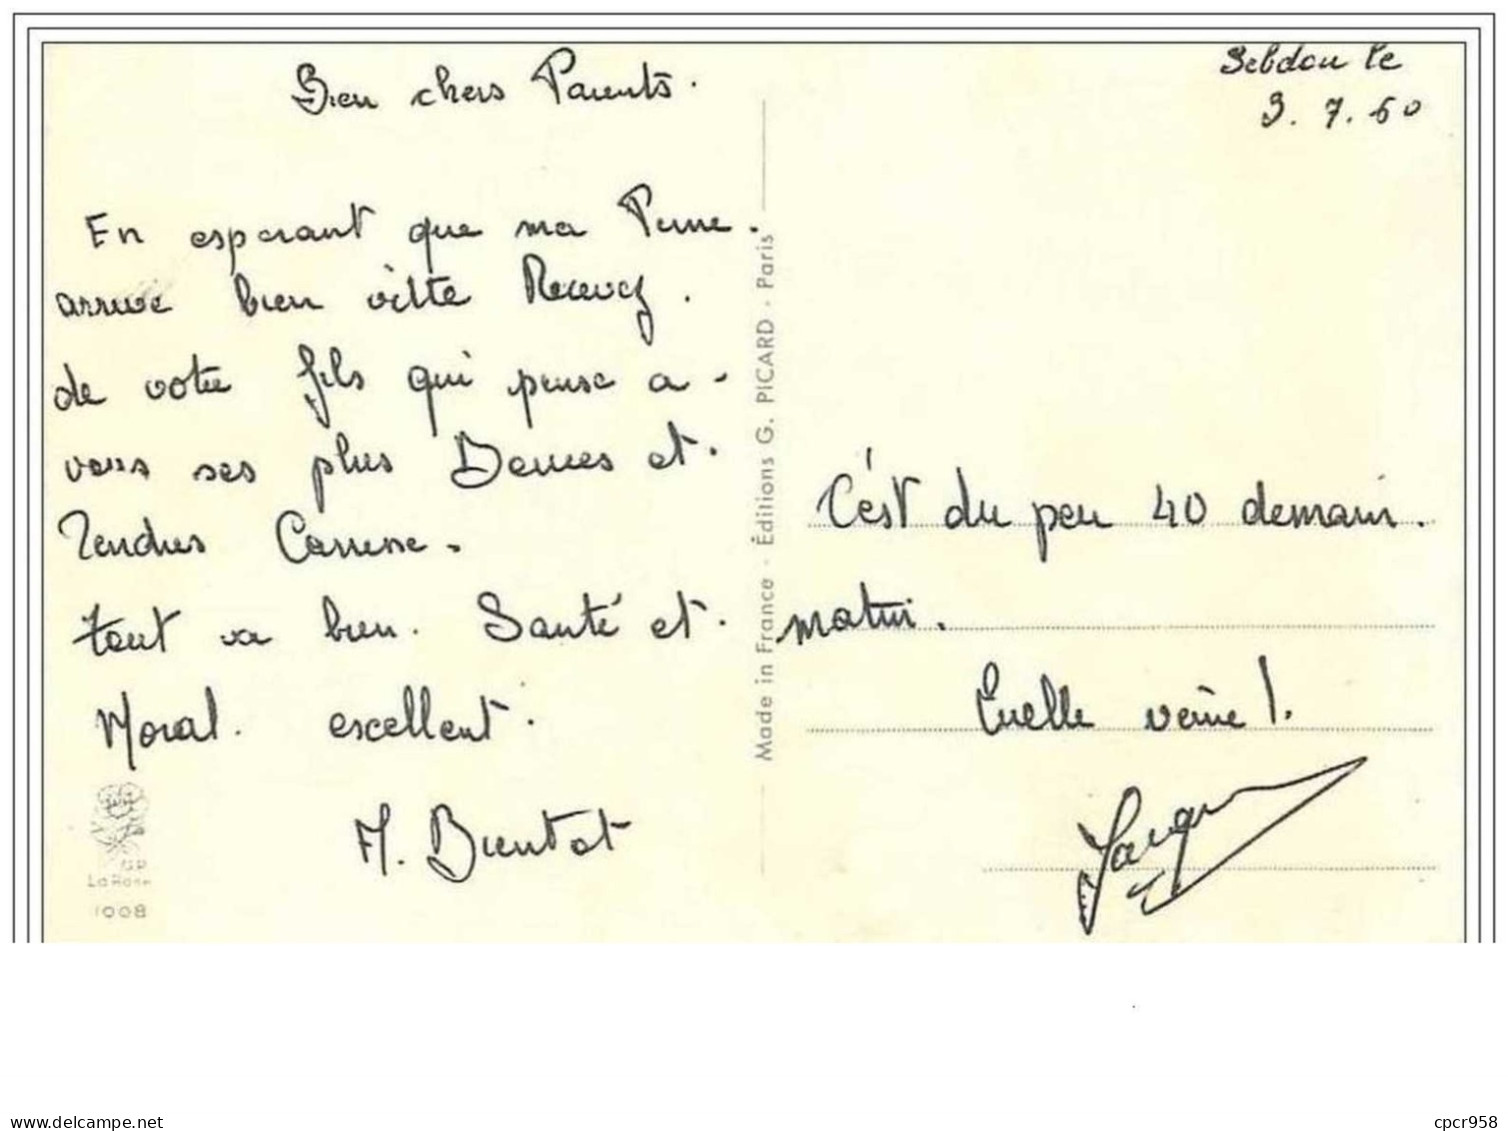 Sebdou le
3. 7. 60
Bien chers Parents.
En esperant que ma Perme.
arrive bien vitte Recevez.
de votre fils qui pense a -
vous ses plus Douces et.
Tendres Caresse.
tout va bien. Santé et.
Moral. excellent.
A. Bientot
C'est du peu 40 demain.
matin.
Quelle veine !.
Jacques
Made in France - Éditions G. PICARD - Paris
GP
La Rose
1008
delcampe.net
cpcr958